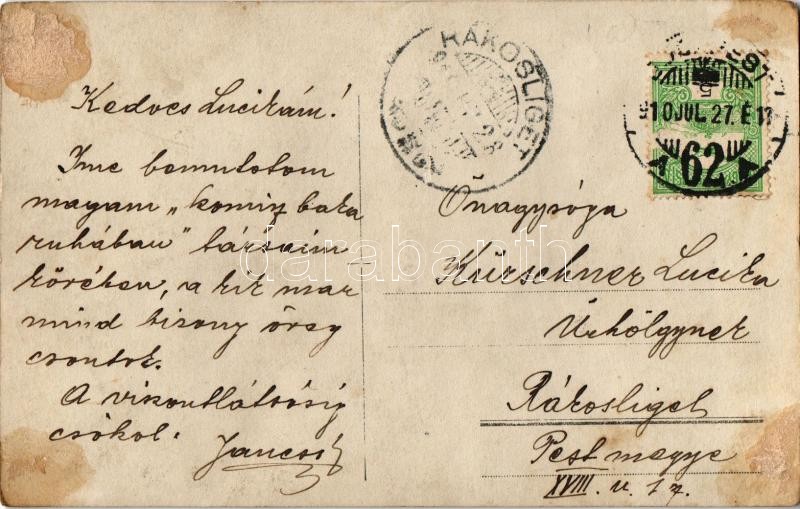 Kedves Lucikám!
Ime bemutatom
magam „komisz baka
ruhában" társaim
körében, a kik már
mind bizony öreg
csontok.
A viszontlátásig
csókol:
Jancsi
RÁKOSLIGET
910 JUL. 27. É 1
62
Őnagysága
Kürschner Lucika
Úrhölgynek
Rákosliget
Pest megye
XVIII. u. 17.
darabanth.com